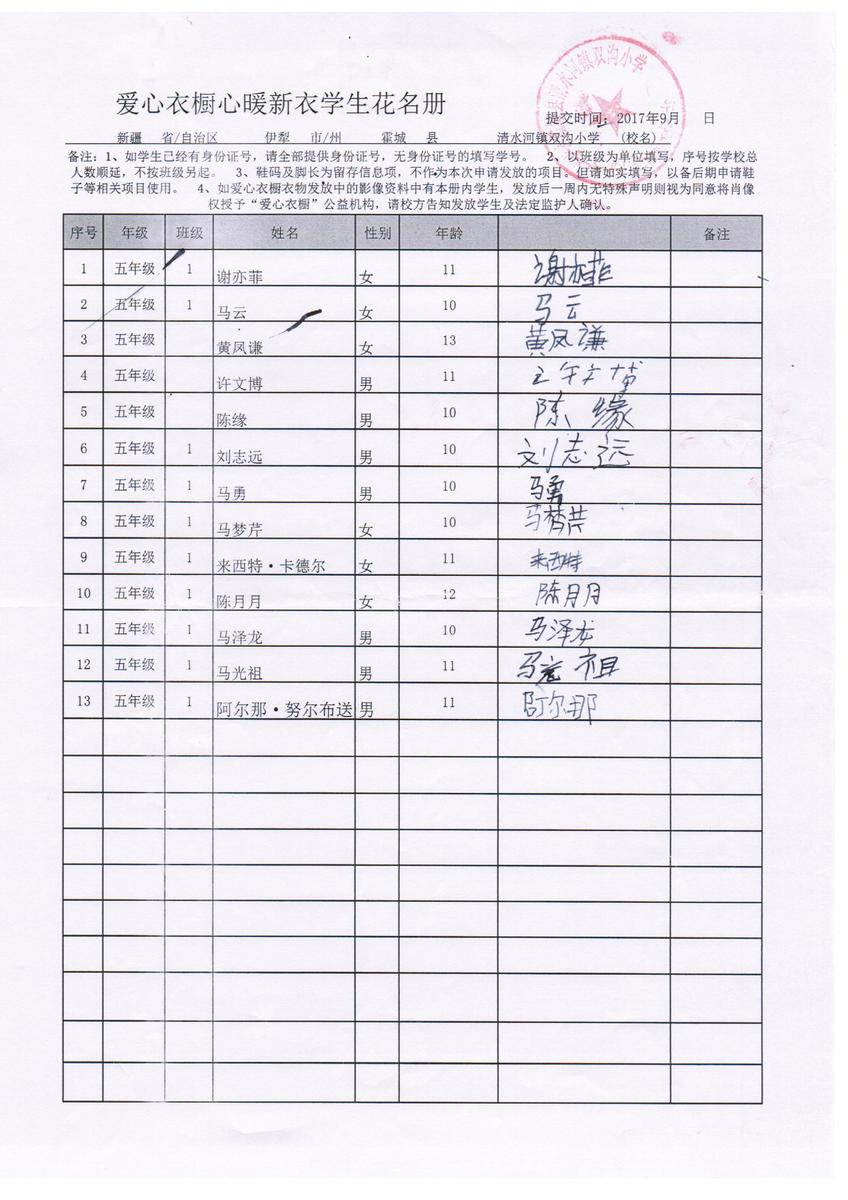 爱心衣橱心暖新衣学生花名册
县清水河镇双沟小学
提交时间：2017年9月 日
新疆 省/自治区 伊犁 市/州 霍城 县 清水河镇双沟小学 （校名）
备注：1、如学生已经有身份证号，请全部提供身份证号，无身份证号的填写学号。 2、以班级为单位填写，序号按学校总
人数顺延，不按班级另起。 3、鞋码及脚长为留存信息项，不作为本次申请发放的项目。但请如实填写，以备后期申请鞋
子等相关项目使用。 4、如爱心衣橱衣物发放中的影像资料中有本册内学生，发放后一周内无特殊声明则视为同意将肖像
权授予“爱心衣橱”公益机构，请校方告知发放学生及法定监护人确认。
序号 年级 班级 姓名 性别 年龄 备注
1 五年级 1 谢亦菲 女 11 谢亦菲
2 五年级 1 马云 女 10 马云
3 五年级 黄凤谦 女 13 黄凤谦
4 五年级 许文博 男 11
5 五年级 陈缘 男 10 陈缘
6 五年级 1 刘志远 男 10 刘志远
7 五年级 1 马勇 男 10 马勇
8 五年级 1 马梦芹 女 10 马梦芹
9 五年级 1 来西特·卡德尔 女 11 来西特
10 五年级 1 陈月月 女 12 陈月月
11 五年级 1 马泽龙 男 10 马泽龙
12 五年级 1 马光祖 男 11 马光祖
13 五年级 1 阿尔那·努尔布送 男 11 阿尔那